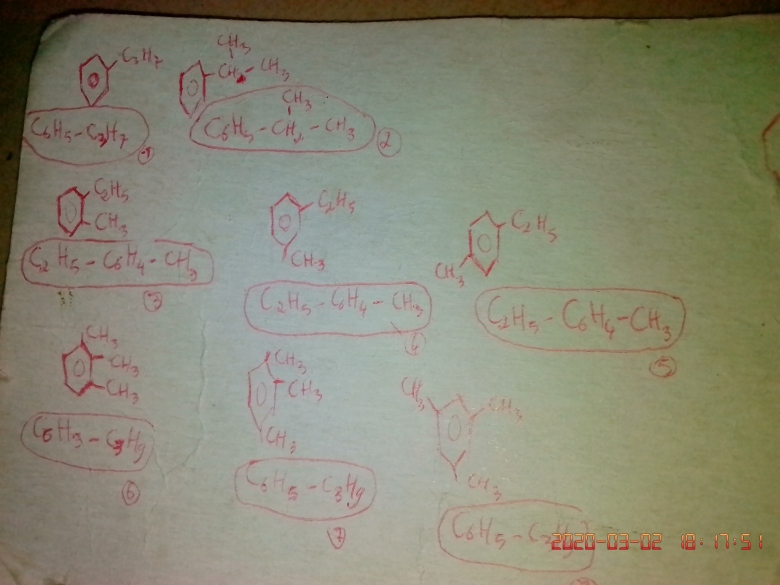 C3H7
CH3
CH - CH3
C6H5-C3H7
1
CH3
C6H5-CH-CH3
2
C2H5
CH3
C2H5-C6H4-CH3
3
C2H5
CH3
C2H5-C6H4-CH3
4
C2H5
CH3
C2H5-C6H4-CH3
5
CH3
CH3
CH3
C6H5-C3H9
6
CH3
CH3
CH3
C6H5-C3H9
7
CH3
CH3
CH3
2020-03-02 18:17:51